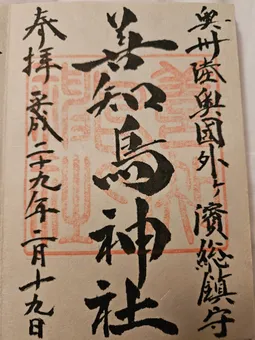 奥州陸奥国外ヶ濱総鎮守
善知鳥神社
奉拝 平成二十九年二月十九日